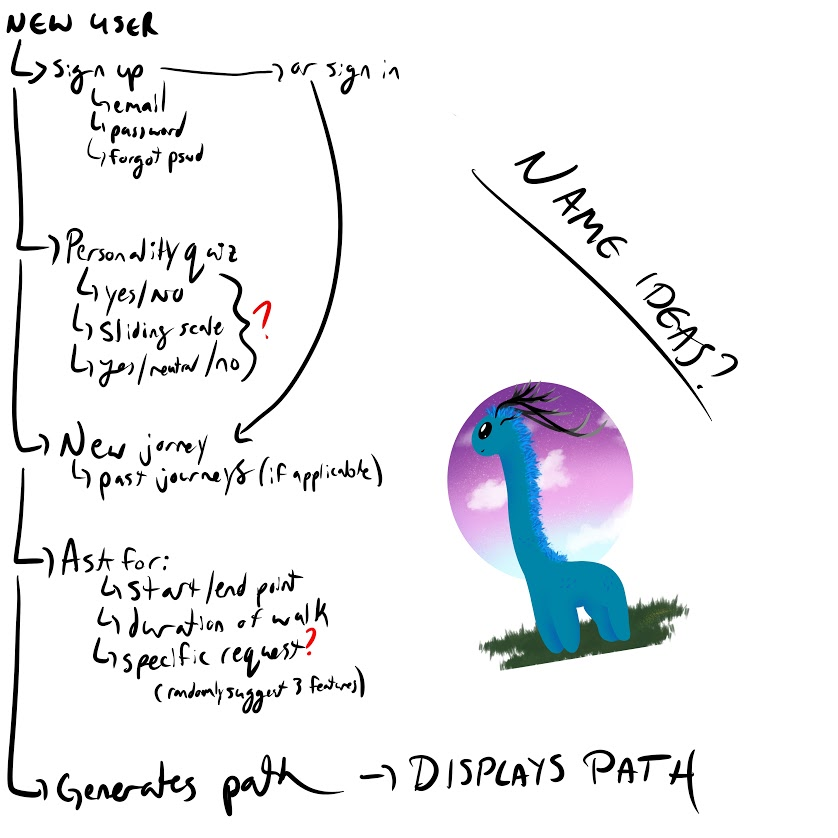 NEW USER
sign up → or sign in
email
password
forgot pswd
Personality quiz
yes/no
sliding scale
yes/neutral/no
?
New jorney
past journeys (if applicable)
Ask for:
start/end point
duration of walk
specific request?
(randomly suggest 3 features)
Generates path → DISPLAYS PATH
NAME IDEAS?